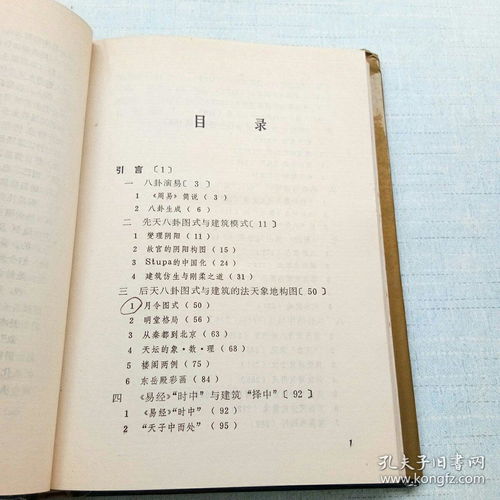 目 录
引言〔1〕
一 八卦演易〔3〕
1 《周易》简说（3）
2 八卦生成（6）
二 先天八卦图式与建筑模式〔11〕
1 燮理阴阳（11）
2 故宫的阴阳构图（15）
3 Stupa的中国化（24）
4 建筑仿生与刚柔之道（31）
三 后天八卦图式与建筑的法天象地构图〔50〕
1 月令图式（50）
2 明堂格局（56）
3 从秦都到北京（63）
4 天坛的象·数·理（68）
5 楼阁两例（75）
6 东岳殿彩画（84）
四 《易经》“时中”与建筑“择中”〔92〕
1 《易经》“时中”（92）
2 “天子中而处”（95）
1
孔夫子旧书网
www.kongfz.com